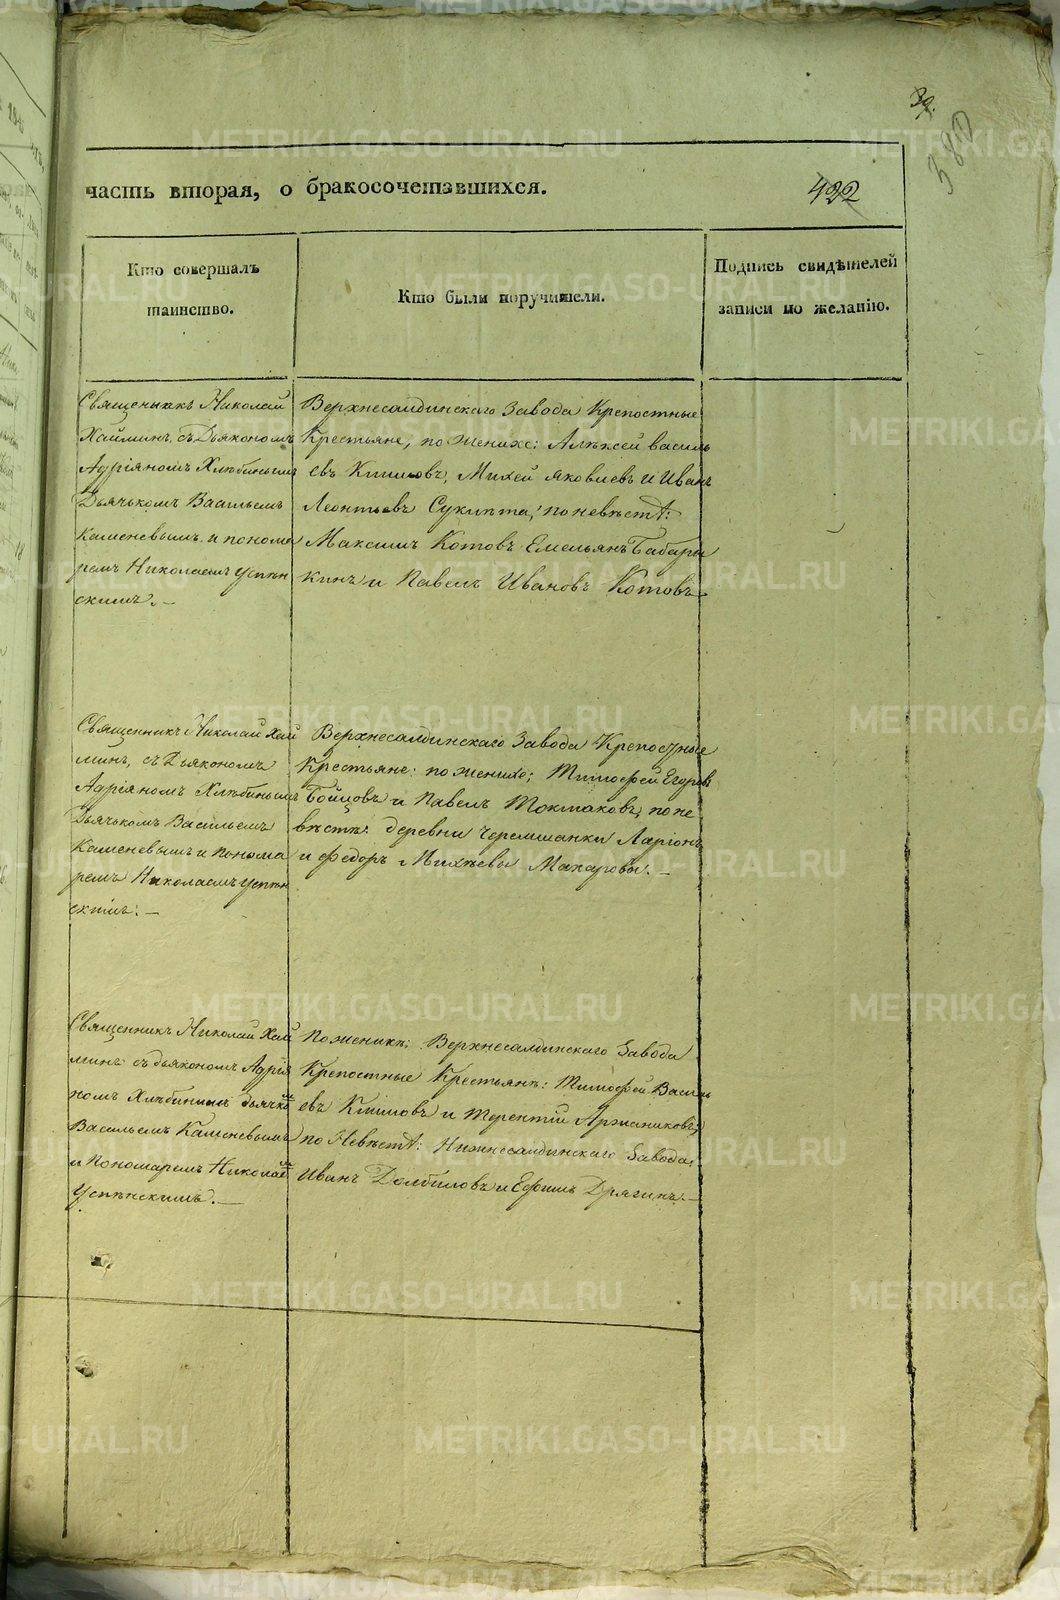 39.
380
часть вторая, о бракосочетавшихся.
422
Кто совершалъ
таинство.
Кто были поручители.
Подпись свидѣтелей
записи по желанію.
Священникъ Николай
Хайминъ, съ Дьякономъ
Адріяномъ Хлѣбинымъ
Дьячькомъ Васильемъ
Каменевымъ и понома
ремъ Николаемъ Успѣн
скимъ. –
Верхнесалдинскаго Завода Крепостные
Крестьяне, по женихе: Алѣксей василь
евъ Климовъ, Михей яковлевъ и Иванъ
Леонтьевъ Сукинта; по невѣстѣ:
Максимъ Котовъ Емельянъ Бабары
кинъ и Павелъ Ивановъ Котовъ
Священникъ Николай Хай
минъ, съ Дьякономъ
Адріяномъ Хлѣбинымъ
Дьячькомъ Васильемъ
Каменевымъ и понома
ремъ Николаемъ Успѣн
скимъ: –
Верхнесалдинскаго Завода Крепостные
Крестьяне: по женихе; Тимофей Егоровъ
Бойцовъ и Павелъ Токмаковъ, по не
вѣстѣ: деревни Черемшанки Ларіонъ
и федоръ Михѣевы Макаровы. –
Священникъ Николай Хай
минъ съ дьякономъ Адрія
номъ Хлѣбинымъ дьячкомъ
Васильемъ Каменевымъ
и Пономаремъ Николаемъ
Успѣнскимъ. –
По женихѣ: Верхнесалдинскаго Завода
Крепостные Крестьянѣ: Тимофей Василь
евъ Климовъ и Терентій Аржаниковъ,
по Невѣстѣ: Нижнесалдинскаго Завода:
Иванъ Долбиловъ и Ефимъ Дрягинъ. –
METRIKI.GASO-URAL.RU